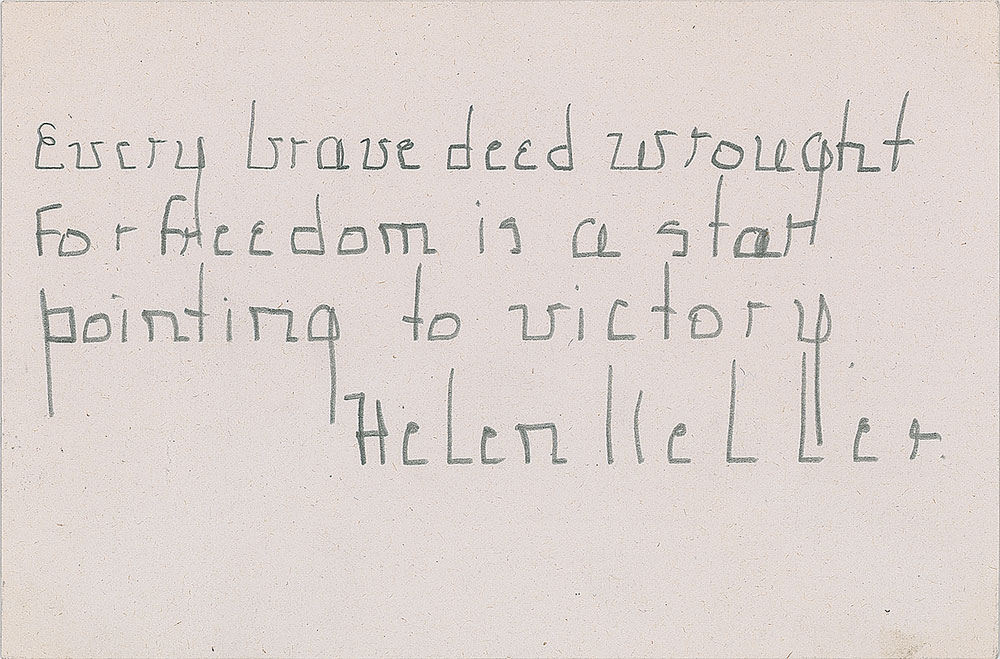 Every brave deed wrought
For freedom is a star
pointing to victory
Helen Keller